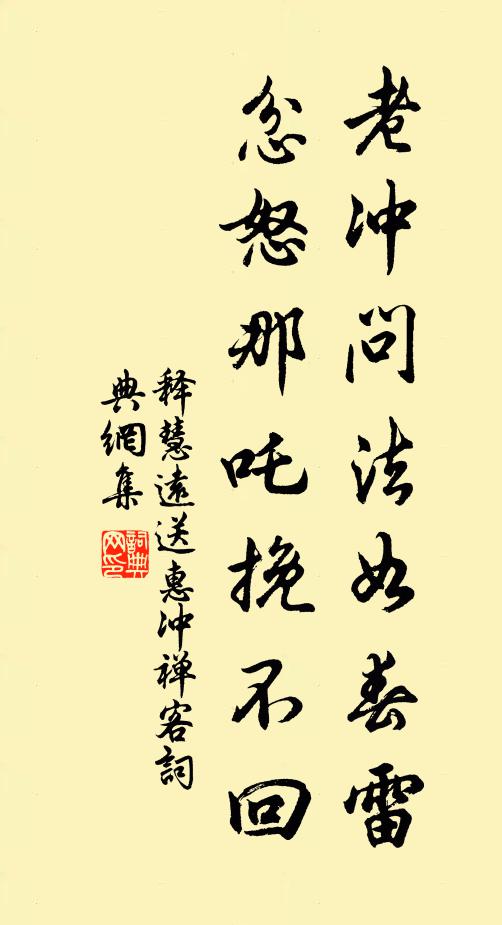 老冲问法如春雷
忿怒那吒挽不回
释慧遠送惠冲禅客詞
典網集
詞典
网印